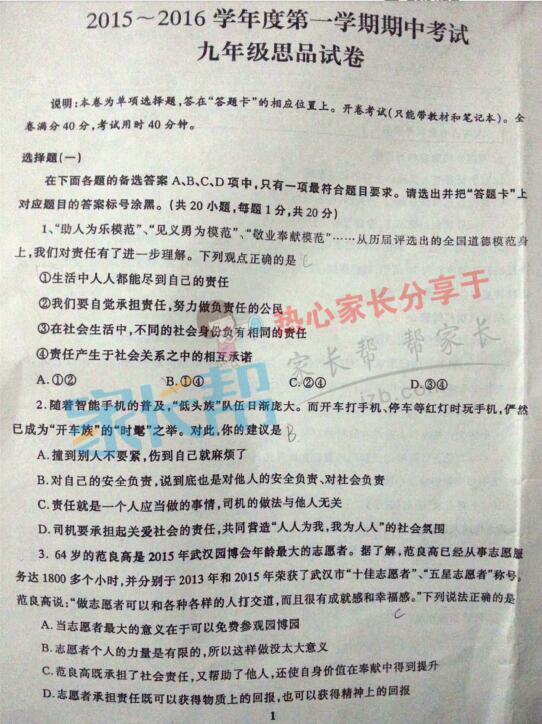 2015～2016 学年度第一学期期中考试
九年级思品试卷
说明:本卷为单项选择题,答在“答题卡”的相应位置上。开卷考试(只能带教材和笔记本)。全
卷满分 40 分,考试用时 40 分钟。
选择题(一)
在下面各题的备选答案 A、B、C、D 项中,只有一项最符合题目要求。请选出并把“答题卡”上
对应题目的答案标号涂黑。(共 20 小题,每题 1 分,共 20 分)
1、“助人为乐模范”、“见义勇为模范”、“敬业奉献模范”……从历届评选出的全国道德模范身
上,我们对责任有了进一步理解。下列观点正确的是 C
①生活中人人都能尽到自己的责任
②我们要自觉承担责任,努力做负责任的公民
热心家长分享于
③在社会生活中,不同的社会身份负有相同的责任
④责任产生于社会关系之中的相互承诺
家长帮 帮家长
A.①② B.①④ C.②④ D.③④
家长帮
jzb.com
2.随着智能手机的普及,“低头族”队伍日渐庞大。而开车打手机、停车等红灯时玩手机,俨然
已成为“开车族”的“时髦”之举。对此,你的建议是 B
A.撞到别人不要紧,伤到自己就麻烦了
B.对自己的安全负责,说到底也是对他人的安全负责、对社会负责
C.责任就是一个人应当做的事情,司机的做法与他人无关
D.司机要承担起关爱社会的责任,共同营造“人人为我,我为人人”的社会氛围
3. 64 岁的范良高是 2015 年武汉园博会年龄最大的志愿者。据了解,范良高已经从事志愿服
务达 1800 多个小时,并分别于 2013 年和 2015 年荣获了武汉市“十佳志愿者”、“五星志愿者”称号。
范良高说:“做志愿者可以和各种各样的人打交道,而且很有成就感和幸福感。”下列说法正确的是
C
A.当志愿者最大的意义在于可以免费参观园博园
B.志愿者个人的力量是有限的,所以这样做没太大意义
C.范良高既承担了社会责任,又帮助了他人,还使自身价值在奉献中得到提升
D.志愿者承担责任既可以获得物质上的回报,也可以获得精神上的回报
1